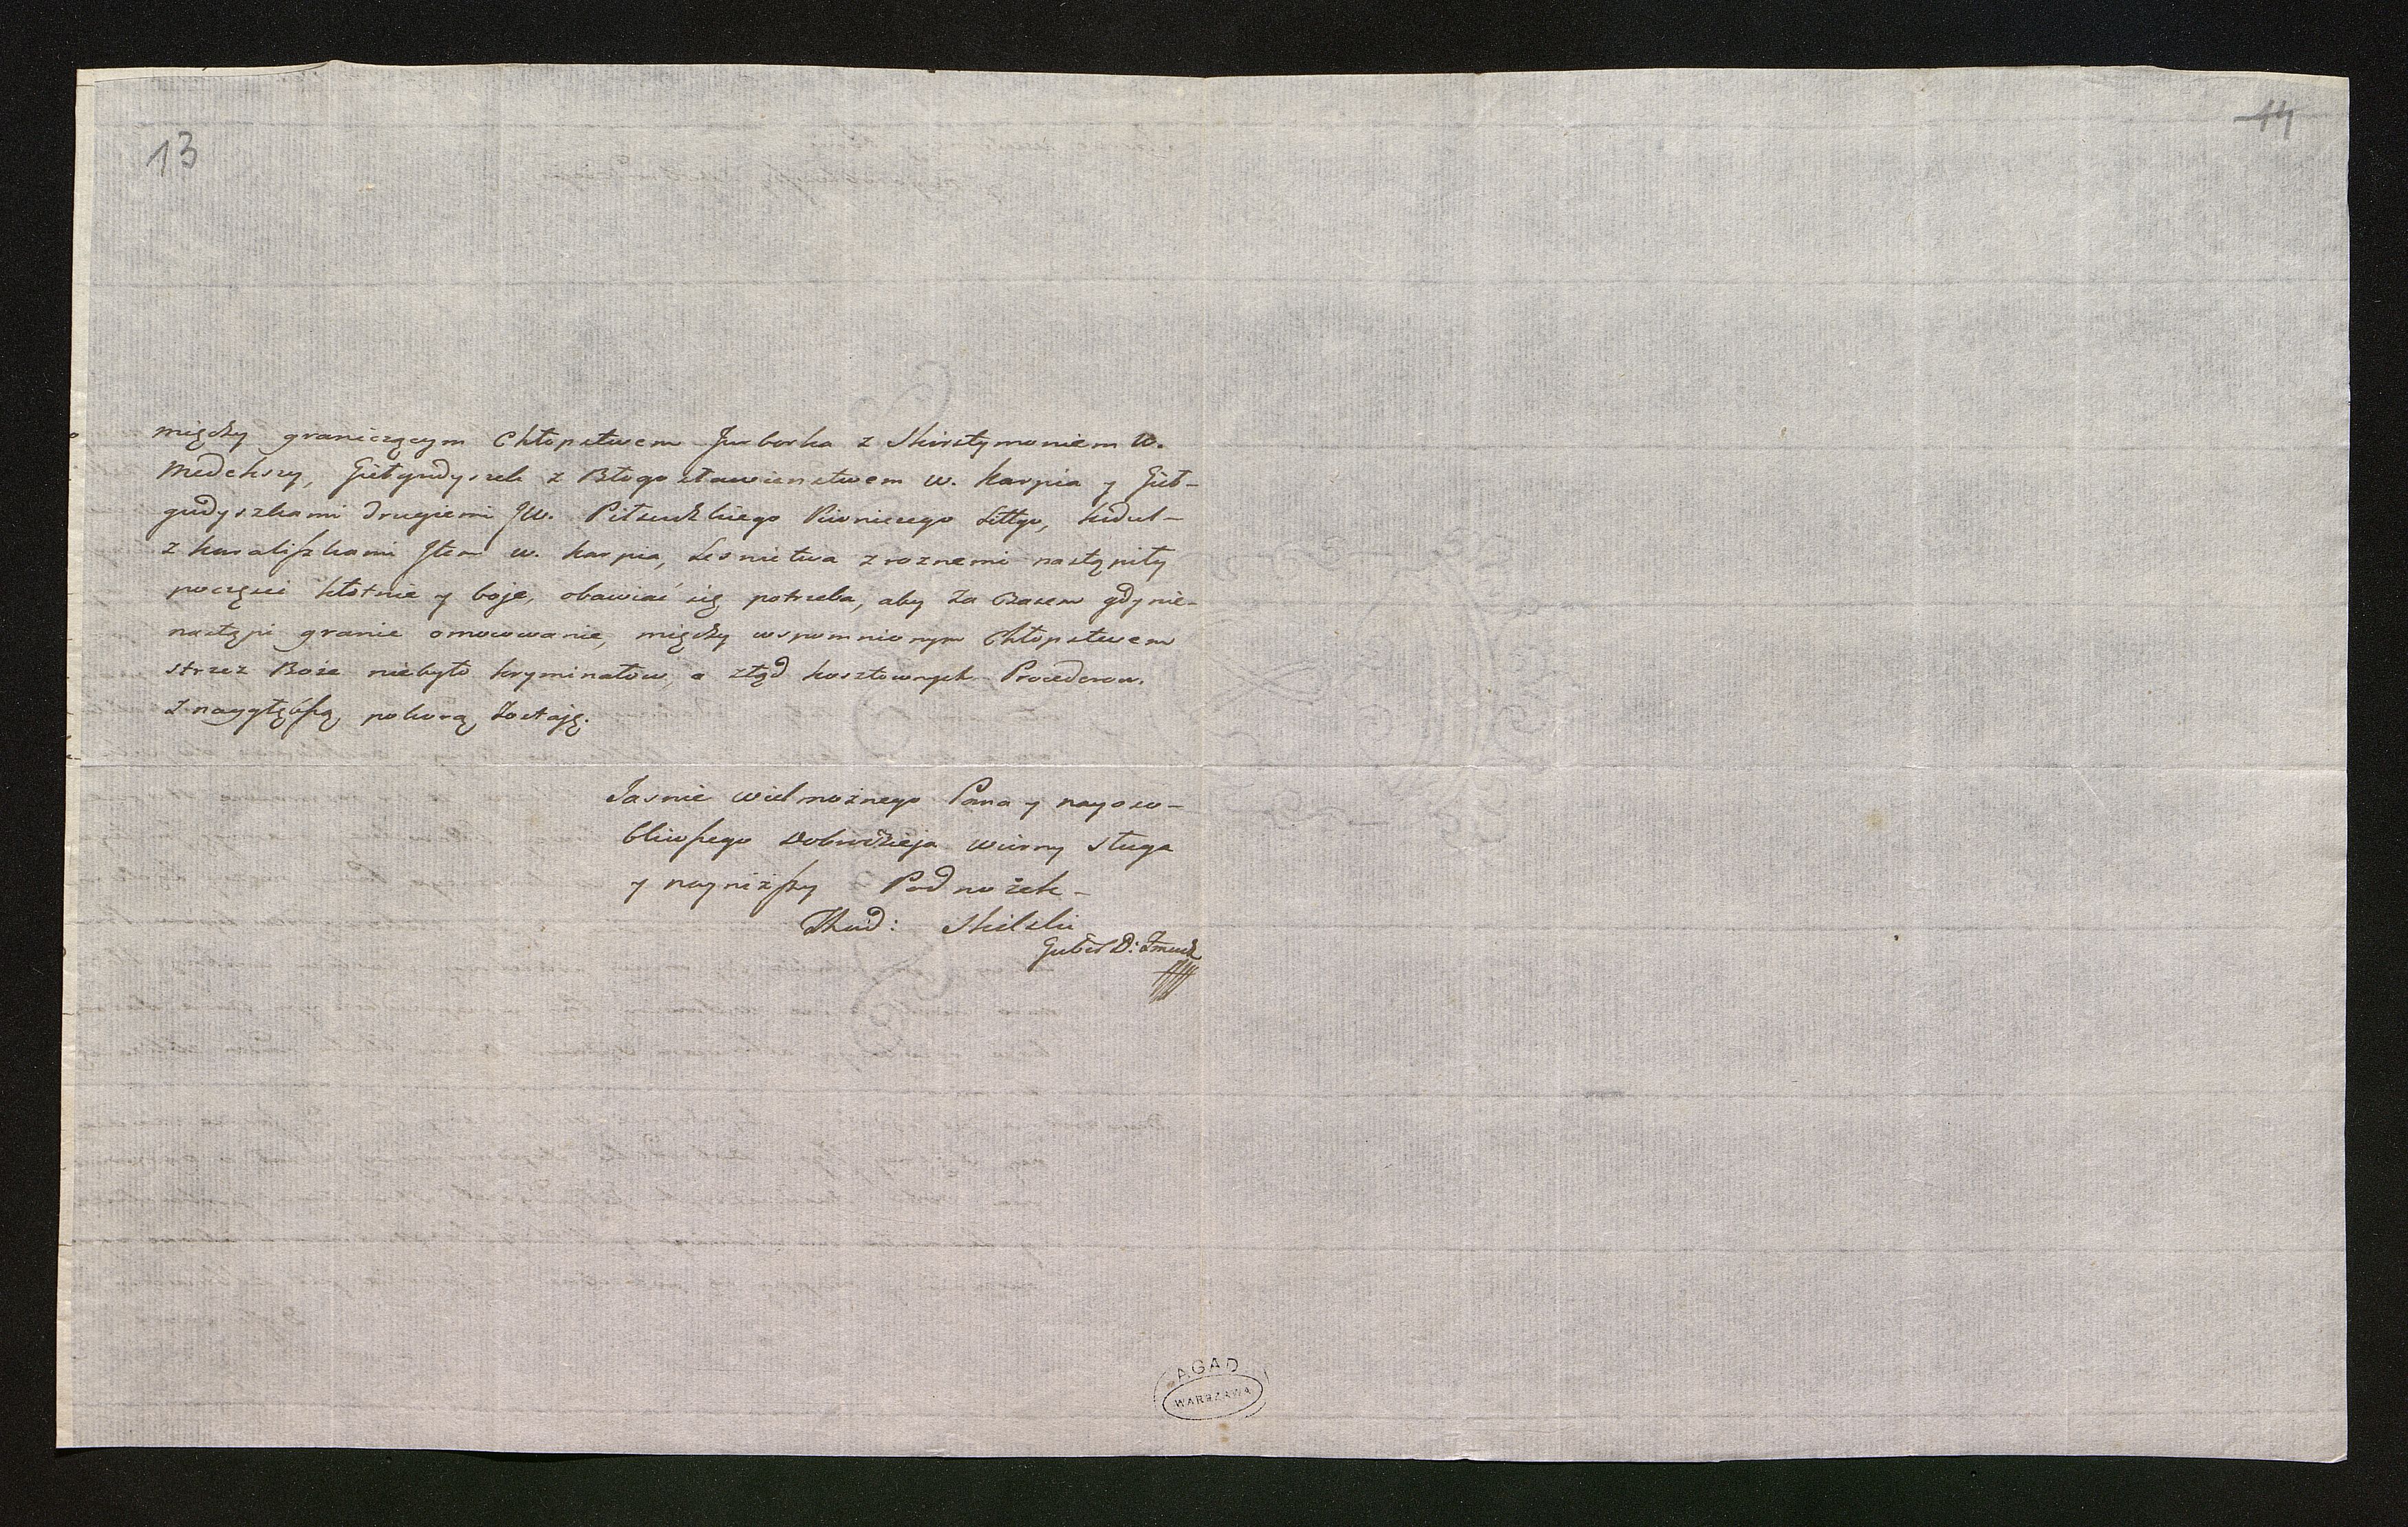 13
14
między graniczącym Chłopstwem Jurborka z Skirstymoniem W.
Medekszy, Giełgudyszek z Błogosławienstwem W. Karpia y Gieł-
gudyszkami Drugiemi JW. Piłsudzkiego Piwniczego Littgo, Kidul-
z Kuraliszkami Item W. Karpia, Lesnictwa z roznemi nastąpiły
poczęści kłotnie y boje, obawiać się potrzeba, aby za czasem gdy nie-
nastąpi granic omowowanie, między wspomnionym Chłopstwem
strzez Boże niebyło kryminałow, a ztąd kosztownych Procederow.
Z naygłębszą pokorą zostaję.
Jasnie wielmożnego Pana y nayoso-
bliwszego Dobrodzieja wierny sługa
y nayniższy Podnożek-
Thad: Skilski
Guber D: Zmudz
AGAD
WARSZAWA